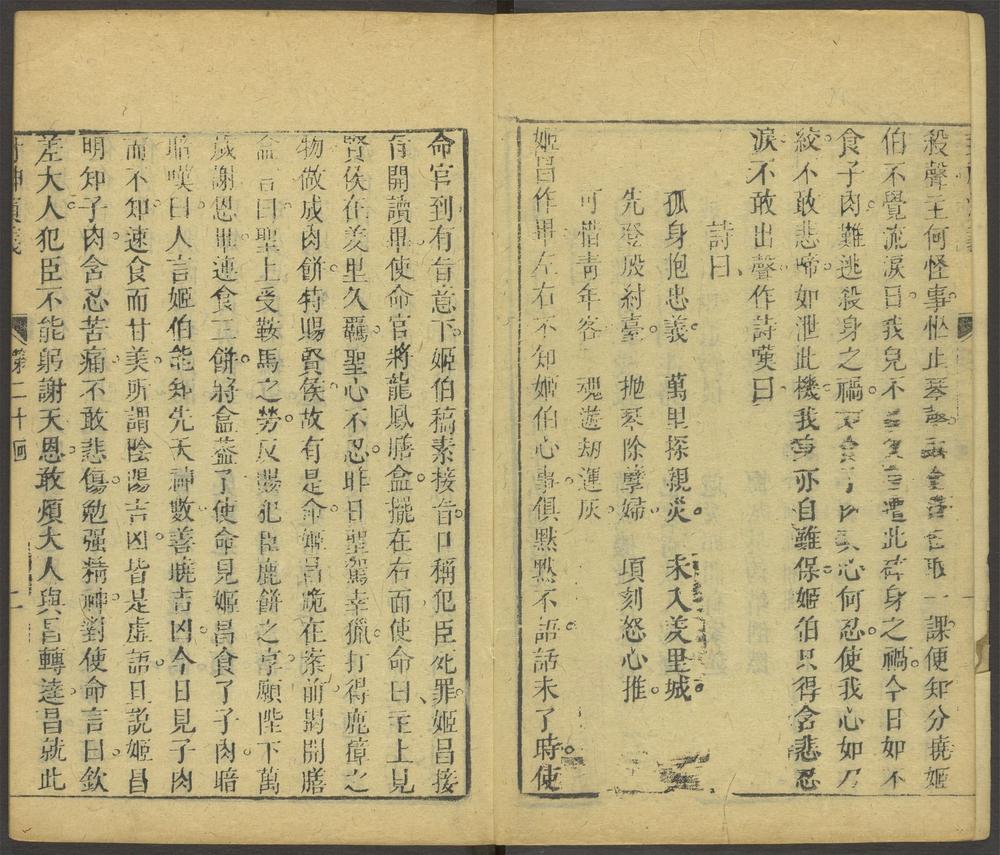 殺聲主何怪事忙止琴聲取一課便知分曉姬
伯不覺流淚曰我兒不遭此碎身之禍今日如不
食子肉難逃殺身之禍子心何忍使我心如刀
絞不敢悲啼如泄此機我身亦自難保姬伯只得含悲忍
淚不敢出聲作詩嘆曰
詩曰
孤身抱忠義 萬里探親災 未入羑里城
先登殷紂臺 抛琴除孽婦 項刻怒心推
可惜青年客 魂遊劫運灰
姬昌作畢左右不知姬伯心事俱默默不語話未了時使
命官到有旨意下姬伯稿素接旨口稱犯臣死罪姬昌接
旨開讀畢使命官將龍鳳膳盒擺在右面使命曰主上見
賢侯在羑里久羈聖心不忍昨日聖駕幸獵打得鹿獐之
物做成肉餅特賜賢侯故有是命姬昌跪在案前揭開膳
盒言曰聖上受鞍馬之勞反賜犯臣鹿餅之享願陛下萬
歲謝恩畢連食三餅將盒蓋了使命見姬昌食了子肉暗
暗嘆曰人言姬伯能知先天神數善曉吉凶今日見子肉
而不知速食而甘美所謂陰陽吉凶皆是虛語且説姬昌
明知子肉含忍苦痛不敢悲傷勉强精神對使命言曰欽
差大人犯臣不能躬謝天恩敢煩大人與昌轉達昌就此
封神演義 第二十回 二